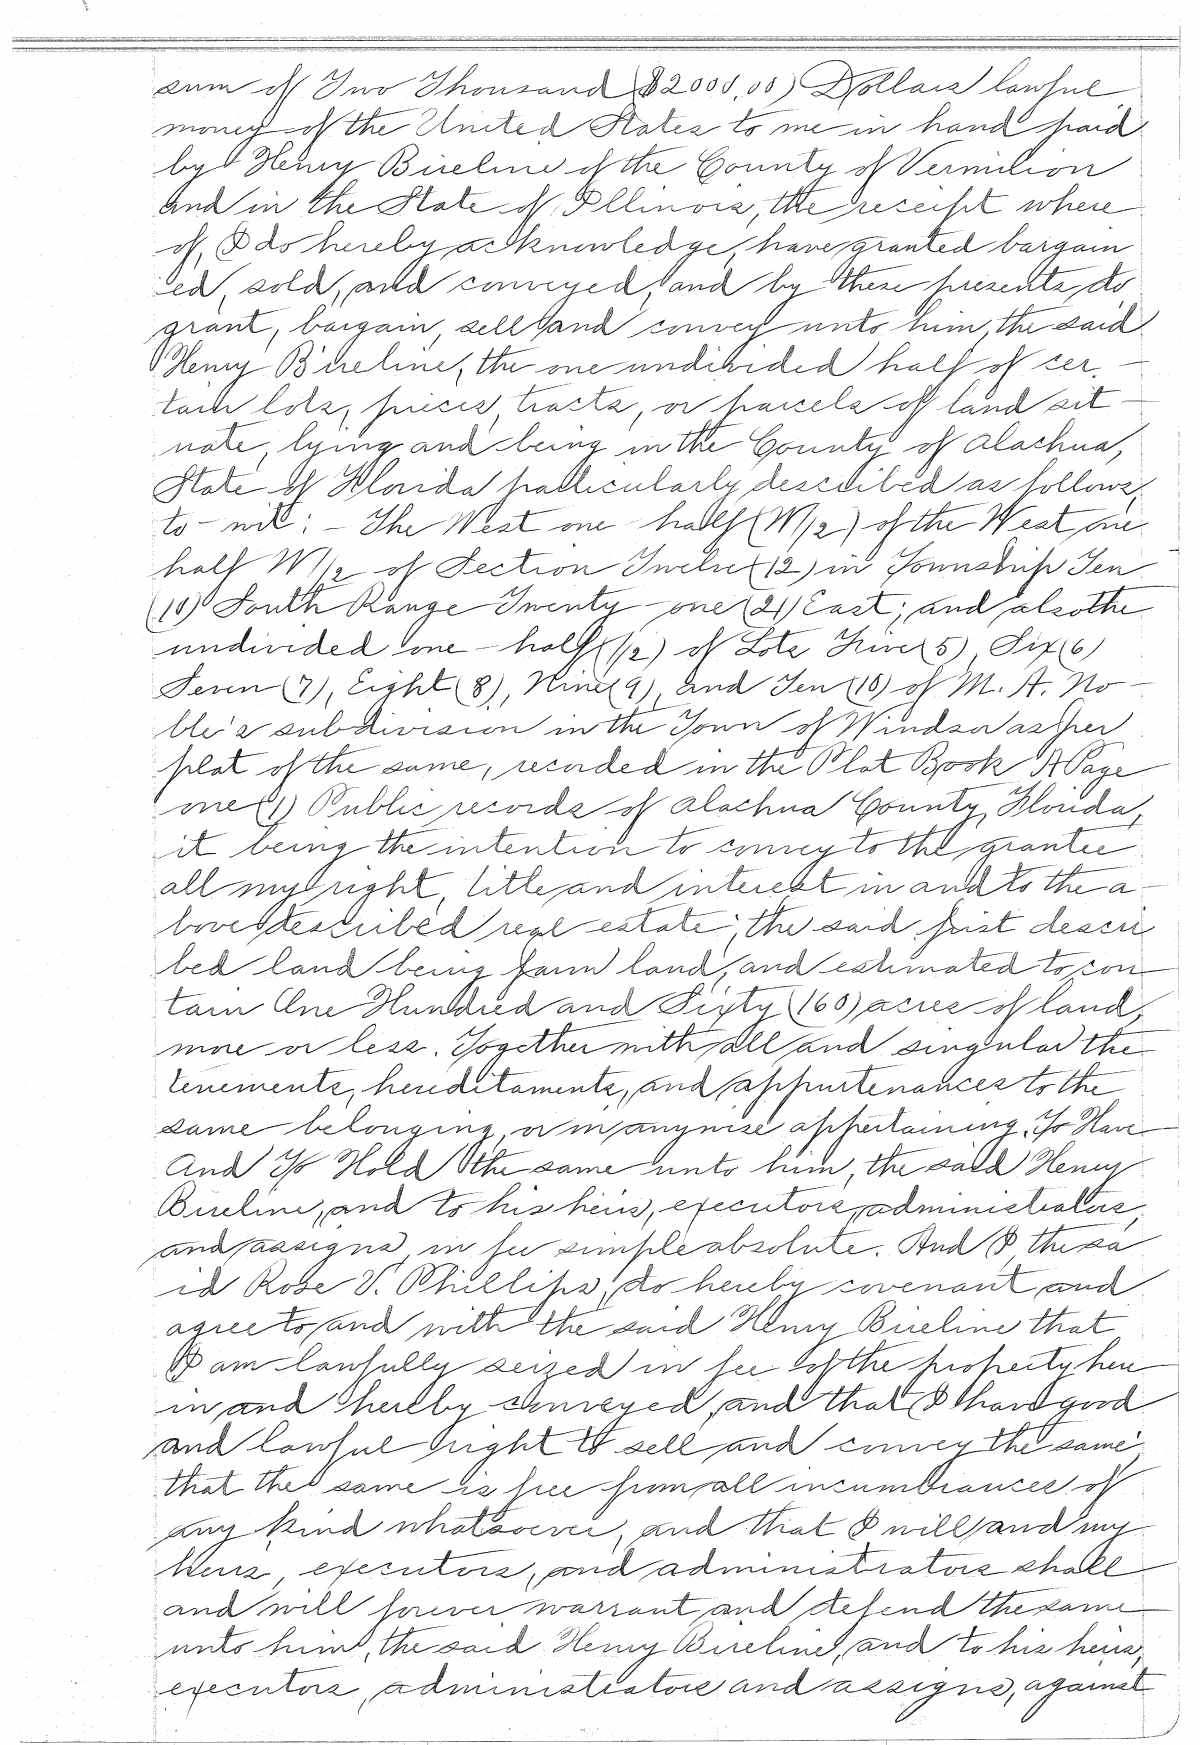 sum of Two Thousand ($2000.00) Dollars lawful
money of the United States to me in hand paid
by Henry Bireline of the County of Vermilion
and in the State of Illinois, the receipt where
of, I do hereby acknowledge, have granted bargain
ed, sold, and conveyed, and by these presents do
grant, bargain, sell and convey unto him, the said
Henry Bireline, the one undivided half of cer-
tain lots, pieces, tracts, or parcels of land sit-
uate, lying and being in the County of Alachua,
State of Florida particularly described as follows,
to-wit:- The West one half (W/2) of the West one
half W/2 of Section Twelve (12) in Township Ten
(10) South Range Twenty-one (21) East; and also the
undivided one-half (1/2) of Lots Five (5), Six (6)
Seven (7), Eight (8), Nine (9), and Ten (10) of M. A. No-
ble's subdivision in the Town of Windsor as per
plat of the same, recorded in the Plat Book A Page
one (1) Public records of Alachua County, Florida,
it being the intention to convey to the grantee
all my right, title and interest in and to the a-
bove described real estate; the said first descri
bed land being farm land, and estimated to con-
tain One Hundred and Sixty (160) acres of land,
more or less. Together with all and singular the
tenements, hereditaments, and appurtenances to the
same belonging, or in anywise appertaining. To Have
And To Hold the same unto him, the said Henry
Bireline, and to his heirs, executors, administrators,
and assigns, in fee simple absolute. And I, the sa
id Rose V. Phillips, do hereby covenant and
agree to and with the said Henry Bireline that
I am lawfully seized in fee of the property here
in and hereby conveyed, and that I have good
and lawful right to sell and convey the same,
that the same is free from all incumbrances of
any kind whatsoever, and that I will and my
heirs, executors, and administrators shall
and will forever warrant and defend the same
unto him, the said Henry Bireline, and to his heirs,
executors, administrators and assigns, against